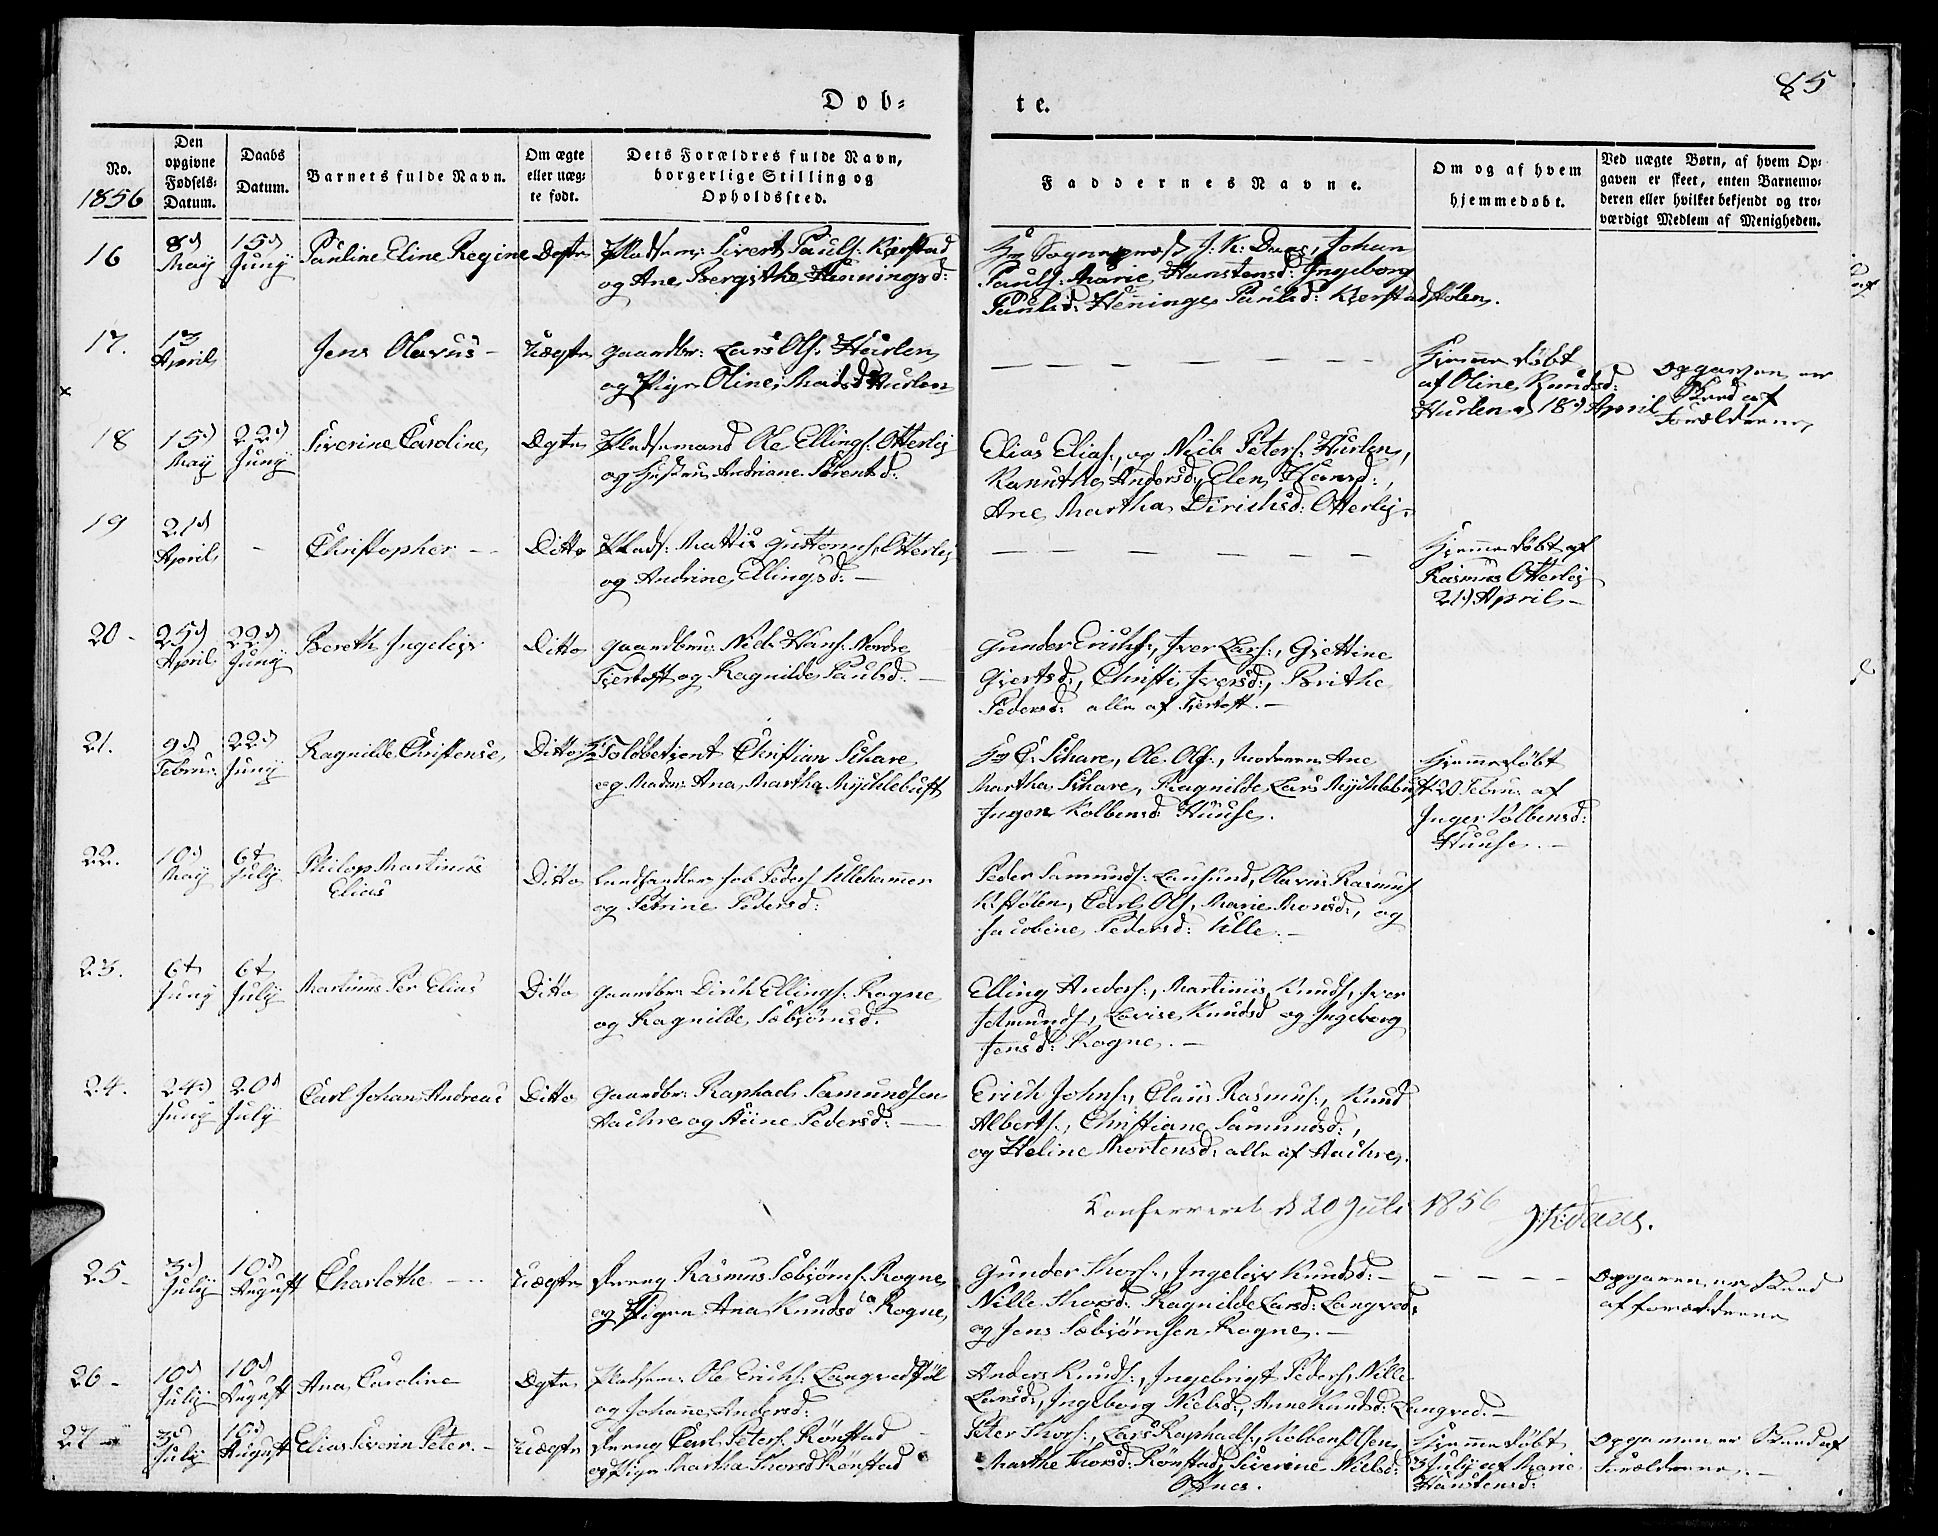 85
Dob-
te.
No.
1856
Den
opgivne
Fødsels-
Datum.
Daabs
Datum.
Barnets fulde Navn.
Om ægte
eller uæg-
te født.
Dets Forældres fulde Navn,
borgerlige Stilling og
Opholdssted.
Faddernes Navne.
Om og af hvem
hjemmedøbt.
Ved uægte Børn, af hvem Op-
gaven er skeet, enten Barnemo-
deren eller hvilket bekjendt og tro-
værdigt Medlem af Menigheden.
16
8d
May
15d
Juny
Pauline Eline Regine
Pladsm: Sivert Pauls: Kjerstad
og Ane Bergithe Henningsd:
Hr Sognepræst J. K: Daae, Johan
Pauls: Marie Hanstensd: Ingeborg
Paulsd: Henninge Paulsd: Kjerstadstølen.
17.
13
April
Jens Olavus –
Uægte
Gaardbr: Lars Ols: Hurlen
og Pige Oline Madsd: Hurlen
Hjemmedøbt
af Oline Knudsd:
Hurlen d 18d April
Opgaven er
Skeed af
Forældrene
18
15d
May
22d
Juny
Siverine Caroline
Ægte
Pladsemand Ole Ellings: Otterlej
og Hustru Andriane Sørensd:
Elias Elias:, og Niels Peters: Hurlen,
Kanuthe Andersd:, Elen Hansd:,
Ane Martha Dirichsd: Otterlej.
19
21d
April
–
Christopher –
Ditto
Plads: Mattis Guttorms: Otterlej
og Andrine Ellingsd: –
Hjemmedøbt af
Rasmus Otterlej
21d April –
20 –
25d
April
22d
Juny
Bereth Ingelev
Ditto
Gaardbru: Niels Hans: Nordre
Fjertoft og Ragnilde Paulsd: –
Gunder Erichs:, Iver Lars:, Gjettine
Gjertsd:, Christi Iversd:, Brithe
Pedersd: alle af Fjertoft. –
21.
9d
Februr:
22d
Juny
Ragnilde Christense
Ditto
Toldbetjent Christian Schare
og Madm: Ana Martha Mychlebust
Hr C. Schare, Ole Ols:, Moderen Ane
Martha Schare, Ragnilde Lars Mychlebust
Inger Kolbensd: Huuse.
Hjemmedøbt
20 Februr: af
Inger Kolbensd:
Huuse. –
22.
10d
May
6t
July
Philop Martinus
Elias
Ditto
Landhandler Jak: Peders: Ullehammer
og Petrine Pedersd:
Peder Samunds: Lausund, Olavus Rasmus:
Carl Ols:, Marie Monsd:, og
Jacobine Pedersd: Ulle. –
23.
6t
Juny
6t
July
Martinus Per Elias
Ditto
Gaardbr: Dirik Ellings: Rogne
og Ragnilde Sæbjørnsd:
Elling Anders:, Martinus Knuds:, Iver
Lovise Knudsd: og Ingeborg
Jensd: Rogne. –
24.
24d
Juny
20d
July
Carl Johan Andreas
Ditto
Gaardbr: Raphael Samundsen
Hauhre og Stine Pedersd: –
Erich Johns:, Claus Rasmus:, Knud
Alberts:, Christiane Samundsd:,
og Heline Mortensd: alle af Hauhre.
Conferreret d 20 Juli 1856 J: K: Daae.
25 –
3d
July
10d
August
Charlothe –
Uægte
Dreng Rasmus Sæbjørns: Rogne
og Pigen Ana Knudsd: Rogne
Gunder Thors:, Ingelev Knudsd: –
Nille Thorsd: Ragnilde Larsd: Langved
og Jens Sæbjørnsen Rogne. –
Opgaven er Skeed
af forældrene
26 –
10d
July
10d
August
Ana Caroline
Ægte
Pladsm: Ole Erichs: Langvedstøl
og Johanne Andersd:
Anders Knuds:, Ingebrigt Peders:, Nille
Larsd:, Ingeborg Nielsd:, Anne Knudsd: Langved. –
27 –
3d
July
10d
August
Elias Siverin Peter –
Uægte
Dreng Carl Peters: Rønstad
og Pige Martha Thorsd Rønstad
Peter Thors:, Lars Raphaels:, Kolben Olsen
Marthe Thorsd: Rønstad, Siverine Nielsd:
Opnes.
Hjemmedøbt
3 July af Marie
Hanstensd:
Opgaven er Skeed af
Forældrene. –